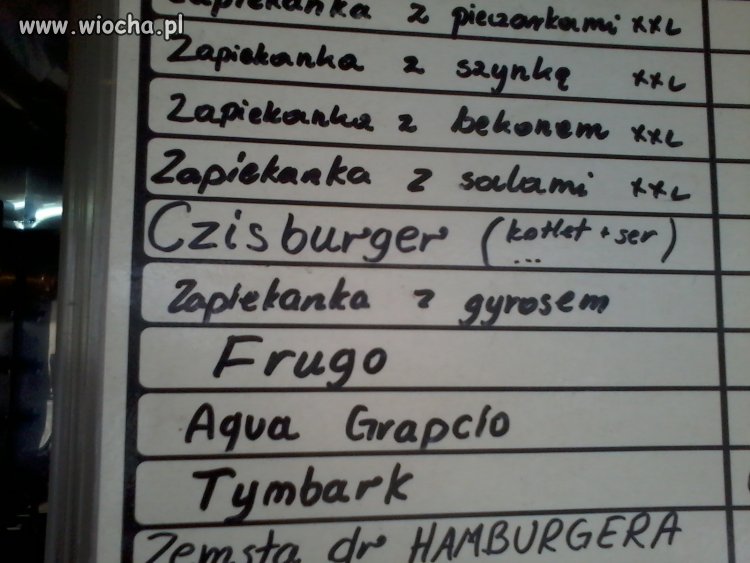 www.wiocha.pl
Zapiekanka z pieczarkami xxL
Zapiekanka z szynką xxL
Zapiekanka z bekonem xxL
Zapiekanka z salami xxL
Czisburger (kotlet + ser)
...
Zapiekanka z gyrosem
Frugo
Aqua Grapcio
Tymbark
Zemsta dr HAMBURGERA